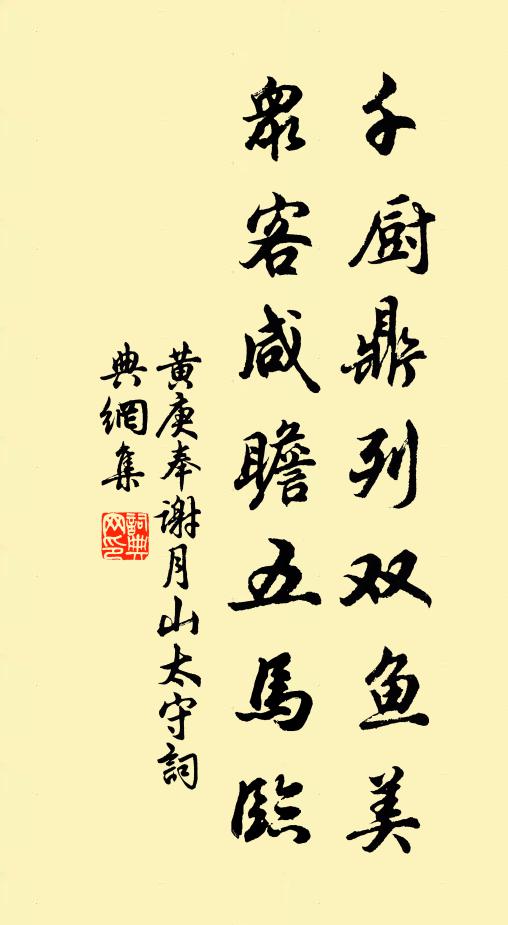 千厨鼎列双鱼美
眾客咸瞻五馬臨
黄庚奉谢月山太守詞
典網集
詞典
网印